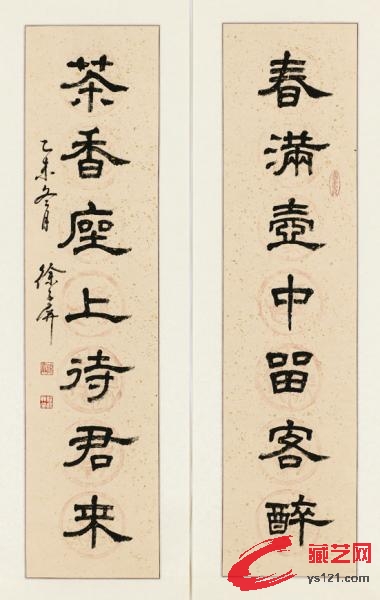 春滿壺中留客醉
茶香座上待君来
乙未冬月
藏艺网
ys121.com